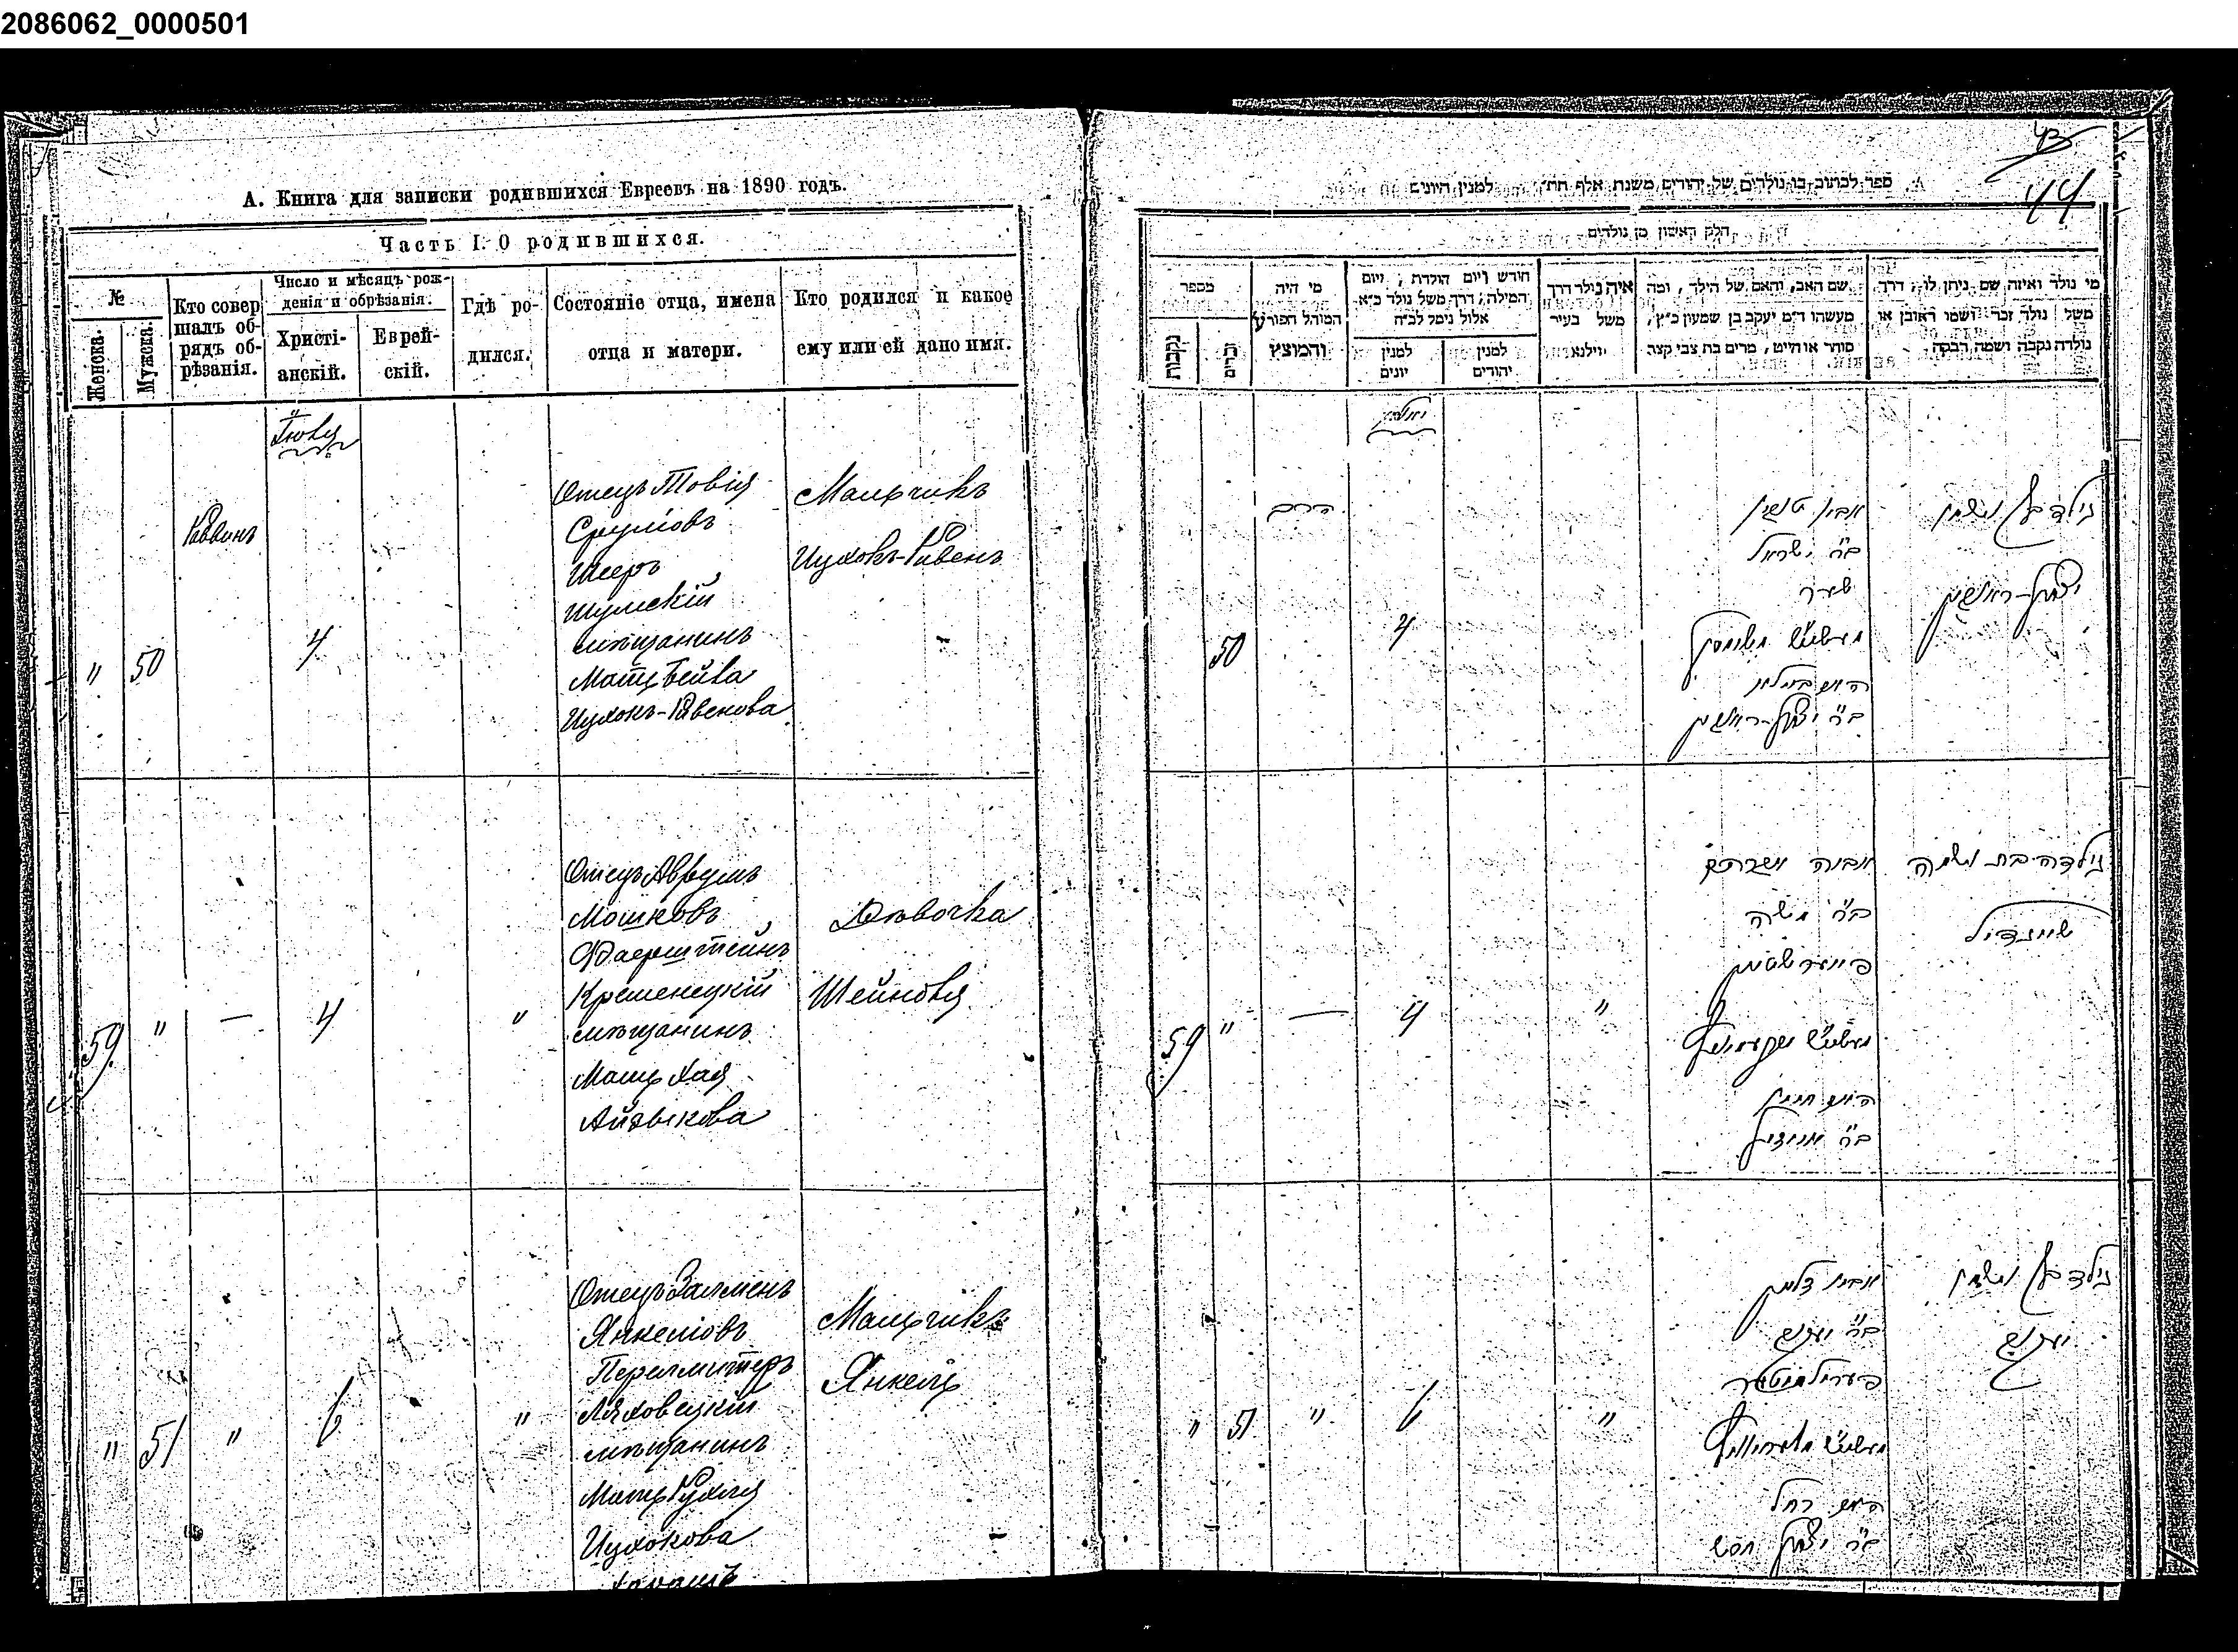 2086062_0000501
А. Книга для записки родившихся Евреевъ на 1890 годъ.
Часть I. О родившихся.
№
Женска.
Мужска.
Кто совер
шалъ об-
рядъ об-
рѣзанія.
Число и мѣсяцъ рож-
денія и обрѣзанія.
Христі-
анскій.
Еврей-
скій.
Гдѣ ро-
дился.
Состояніе отца, имена
отца и матери.
Кто родился и какое
ему или ей дано имя.
Іюля
"
50
Раввинъ
4
Отецъ Товія
Срулiовъ
Шеръ
Шумскій
мѣщанинъ
Мать Бейла
Ицхокъ-Рувенова
Мальчикъ
Ицхокъ-Рувенъ
59
"
—
4
"
Отецъ Аврумъ
Мошковъ
Фаерштейнъ
Кременецкій
мѣщанинъ
Мать Хая
Айзыкова
Дѣвочка
Шейндля
"
51
"
6
"
Отецъ Залменъ
Янкеліовъ
Перельмутеръ
Ляховецкій
мѣщанинъ
Мать Рухля
Ицхокова
Мальчикъ
Янкель
44
ספר לכתוב בו נולדים של יהודים משנת אלף תת״ למנין היונים
חלק ראשון מן נולדים
מספר
נקבות
זכרים
מי היה
המוהל הפורע
והמוצץ
חודש ויום הולדת, ויום
המילה, דרך משל נולד כ״א
אלול נימל לכ״ח
למנין
יונים
למנין
יהודים
איה נולד דרך
משל בעיר
ווילנא
שם האב, והאם של הילד, ומה
מעשהו ד״מ יעקב בן שמעון כ״ץ,
סוחר או חייט, מרים בת צבי קצה
מי נולד ואיזה שם ניתן לו, דרך
משל נולד זכר ושמו ראובן או
נולדה נקבה ושמה רבקה
יולי
50
הרב
4
אביו טובי׳
ב״ר ישראל
שער
ב״ר יצחק-ראובן
נולד בן ושמו
יצחק-ראובן
59
"
—
4
"
אביה אברהם
ב״ר משה
פייערשטיין
נולדה בת ושמה
שיינדיל
"
51
"
6
"
אביו זלמן
ב״ר יעקב
פערילמוטער
האם רחל
ב״ר יצחק
נולד בן ושמו
יעקב